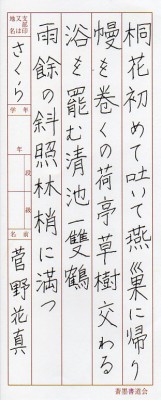 桐花初めて吐いて燕巣に帰り
幔を巻くの荷亭草樹交わる
浴を罷む清池一雙鶴
雨餘の斜照林梢に満つ
支部印又は地名
さくら
学年
年
段
級
名前
菅野花真